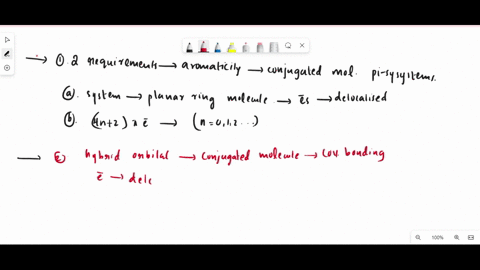 → ①. 2 requirements → aromaticity → conjugated mol. pi-sysystems.
ⓐ. system → planar ring molecule → ēs → delocalised
ⓑ. (4n+2) π ē → (n = 0,1,2 ...)
→ ②. hybrid orbital → conjugated molecule → cov. bonding
ē → delc
100%